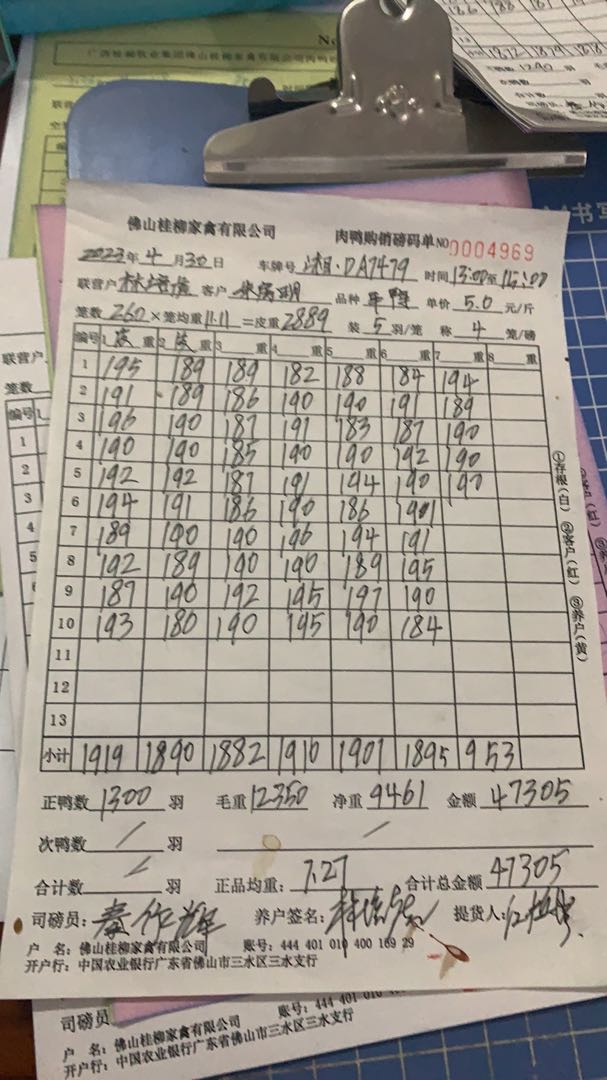 广西桂柳牧业集团佛山桂柳家禽有限公司肉鸭
联营
佛山桂柳家禽有限公司 肉鸭购销磅码单 NO 0004969
2023年4月30日 车牌号 湘·DA7479 时间13:00至
联营户 客户 品种 单价5.0元/斤
笼数260×笼均重11.11=皮重2889 装5羽/笼 称4笼/磅
编号 1 重 2 重 3 重 4 重 5 重 6 重 7 重 8 重
1 195 189 189 182 188 184 194
2 191 189 186 190 190 191 189
3 196 190 187 191 183 187 190
4 190 190 185 190 190 192 190
5 192 192 187 191 194 190 190
6 194 191 186 190 186 191
7 189 190 190 196 194 191
8 192 189 190 190 189 195
9 187 190 192 195 197 190
10 193 180 190 195 190 184
11
12
13
小计 1919 1890 1882 1910 1901 1895 953
①存根(白) ②客户(红) ③养户(黄)
正鸭数1300羽 毛重12350 净重9461 金额47305
次鸭数 / 羽 /
合计数 / 羽 正品均重:7.27 合计总金额47305
司磅员: 养户签名: 提货人:
户 名:佛山桂柳家禽有限公司 账号:444 401 010 400 169 29
开户行:中国农业银行广东省佛山市三水区三水支行
联营户
笼数
编号
1
2
3
4
5
司磅员
户 名:佛山桂柳家禽有限公司 账号:444 401 010
开户行:中国农业银行广东省佛山市三水区三水支行